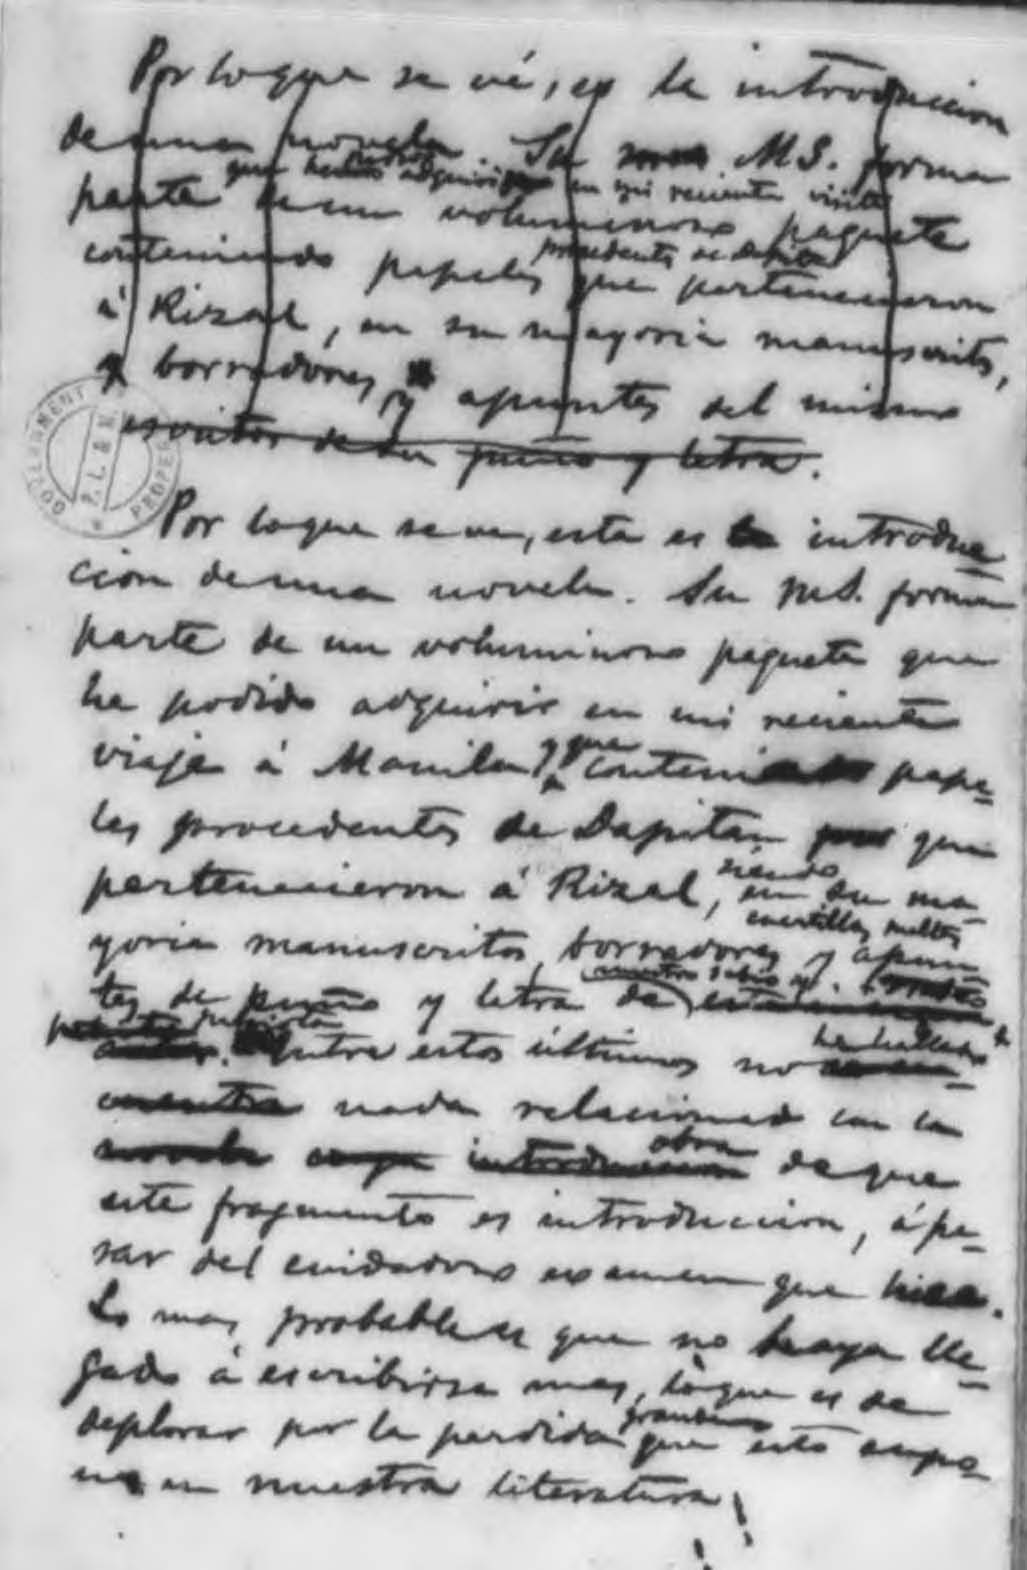 Por lo que se vé, es la introduccion
de una novela. Su MS. forma
que hemos podido adquirir en mi reciente visita
parte de un voluminoso paquete
procedente de Dapitan
conteniendo papeles que pertenecieron
á Rizal, en su mayoria manuscritos,
y borradores y apuntes del mismo
escritos de su puño y letra.
GOVERNMENT PROPERTY
P. L. & M.
Por lo que se ve, esta es la introduc
cion de una novela. Su MS. forma
parte de un voluminoso paquete que
he podido adquirir en mi reciente
viaje á Manila, y que conteni pape-
les procedentes de Dapitan que
pertenecieron á Rizal, siendo en su ma-
cuartillas sueltas
yoria manuscritos, borradores y apun-
nuestro sabio y
tes de puño y letra de
publicista
Entre estos últimos no he hallado
nada relacionado con la
obra de que
este fragmento es introduccion, á pe-
sar del cuidadoso examen que hice.
Lo mas probable es que no haya lle-
gado á escribirse mas, lo que es de
deplorar por la perdida grandisima que esto supo-
ne en nuestra literatura